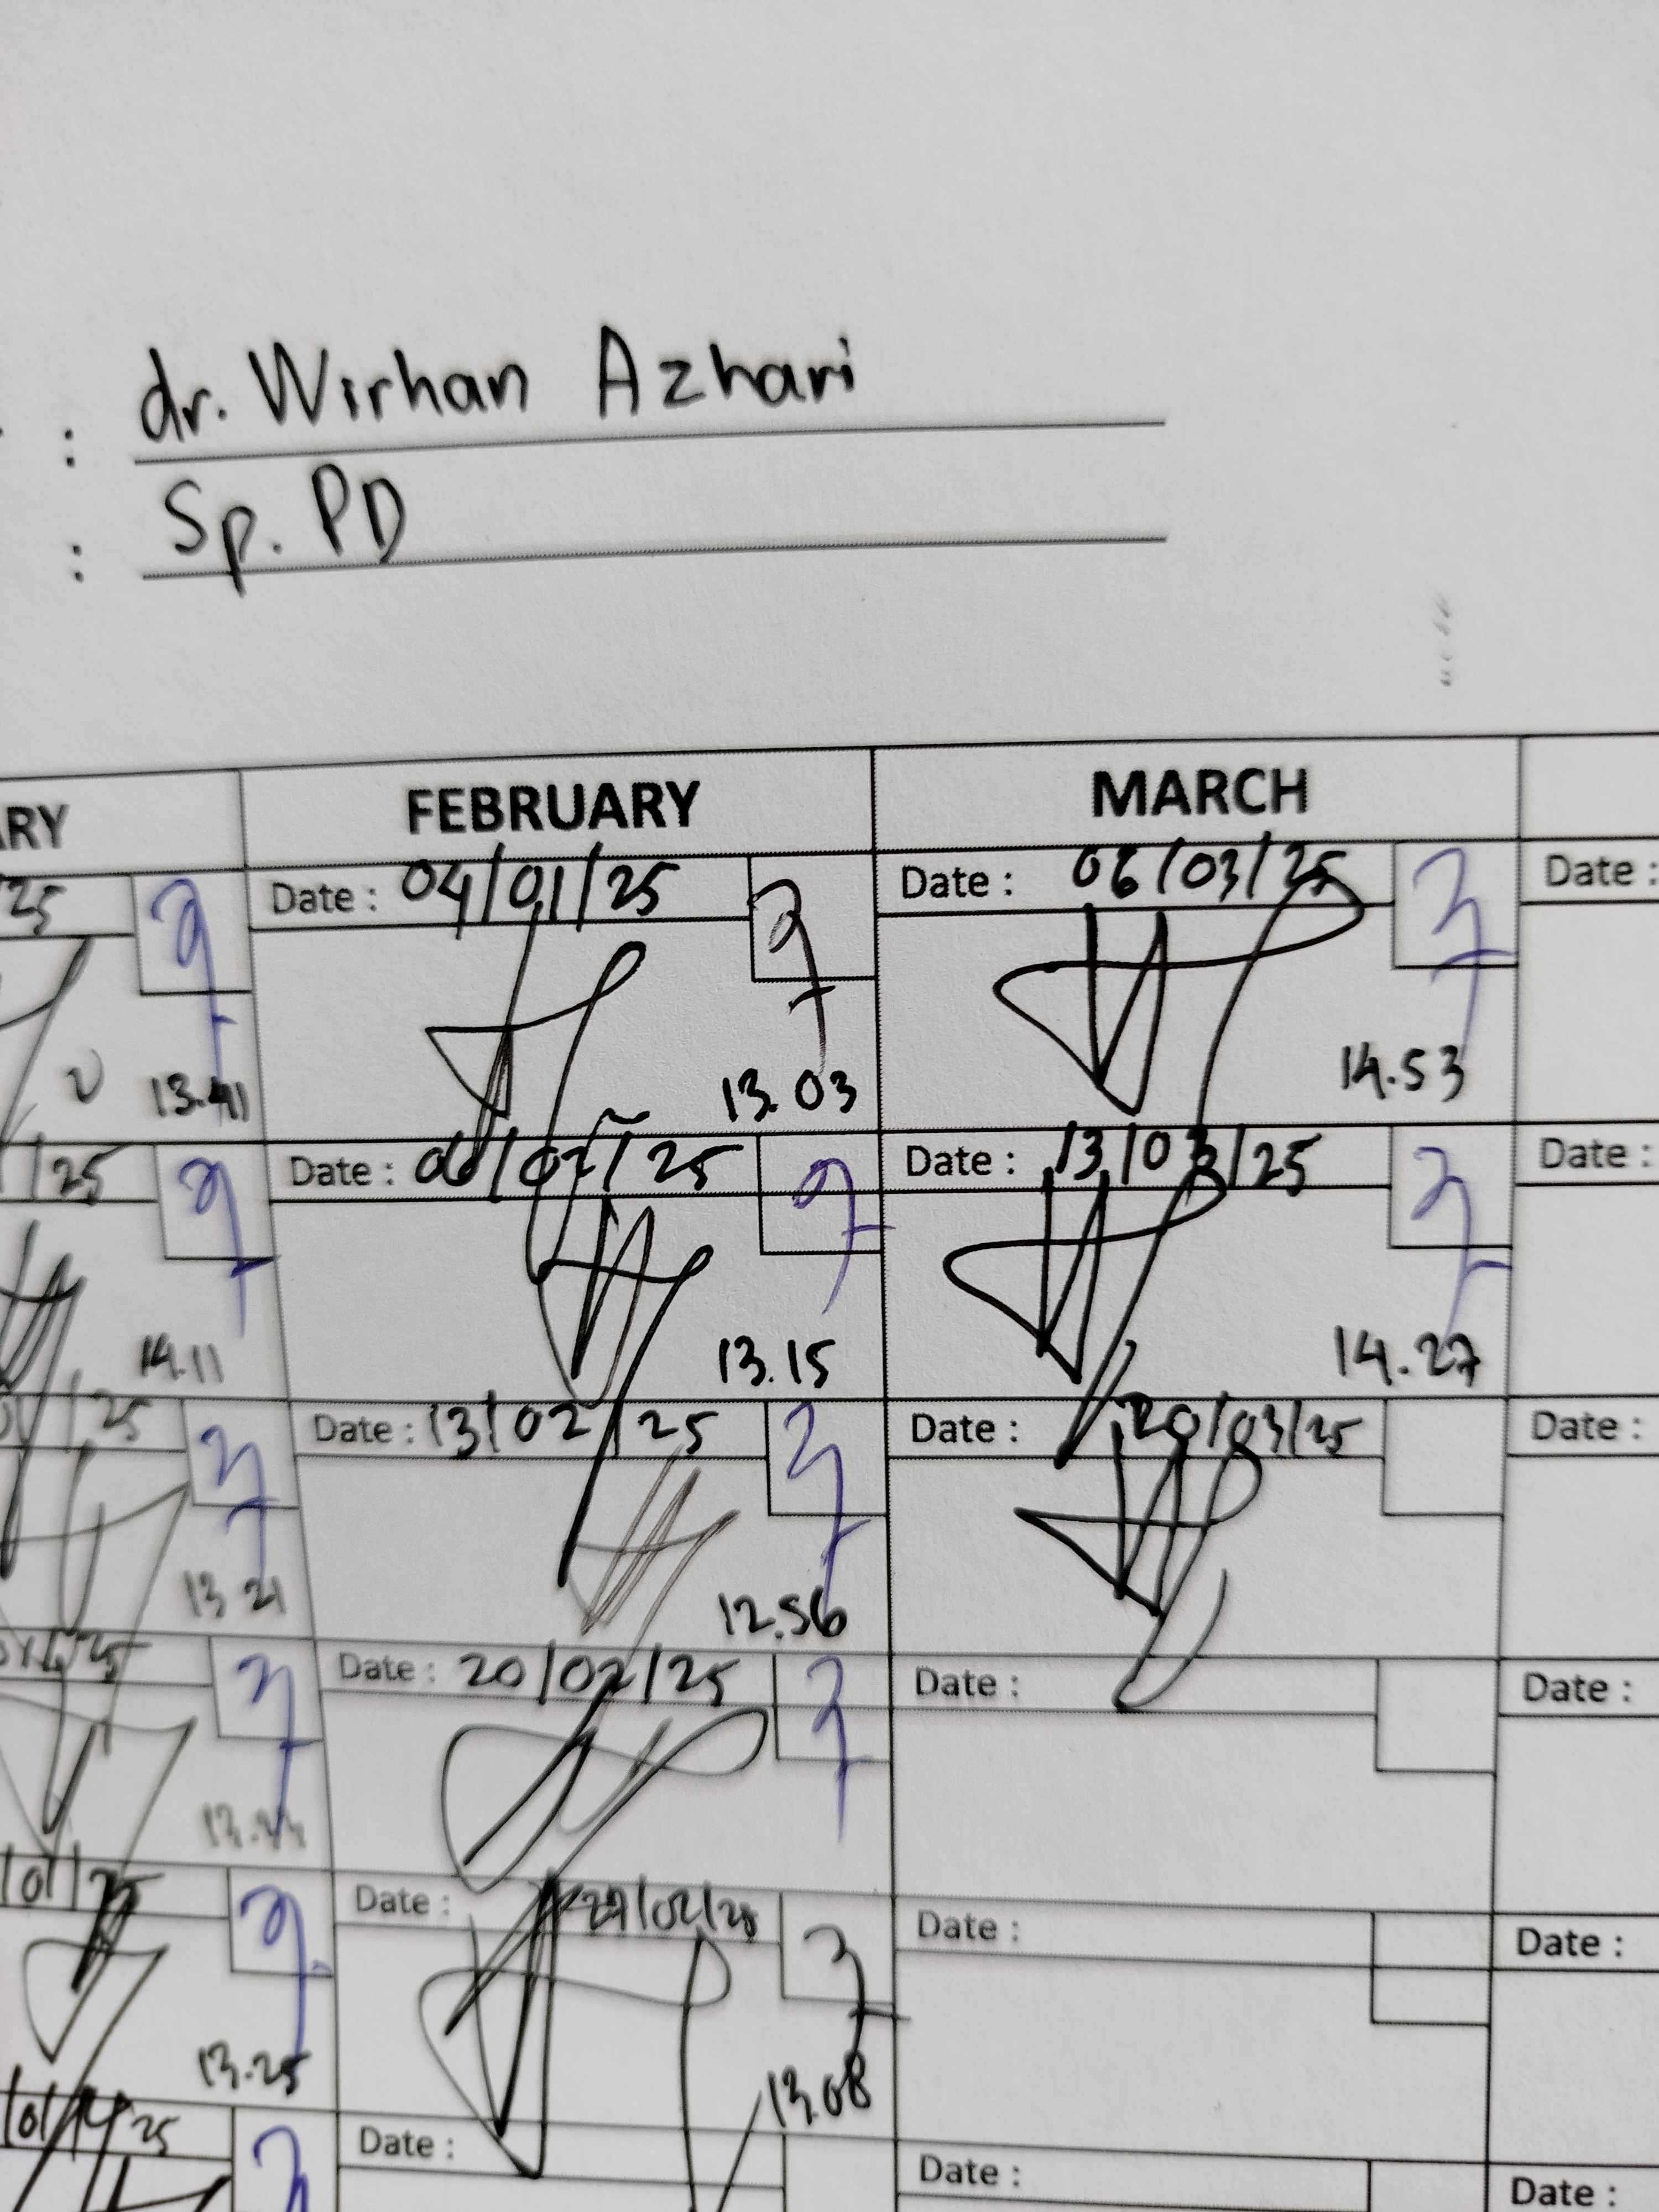 : dr. Wirhan Azhari
: Sp. PD
FEBRUARY MARCH
25 Date : 04/01/25 Date : 06/03/25 Date :
13.41 13.03 14.53
/25 Date : 06/02/25 Date : 13/03/25 Date :
14.11 13.15 14.27
25 Date : 13/02/25 Date : 20/03/25 Date :
13 21 12.56
25 Date : 20/02/25 Date : Date :
/01/ Date : Date : Date :
13.25 13.08
/01/ 25 Date : Date : Date :